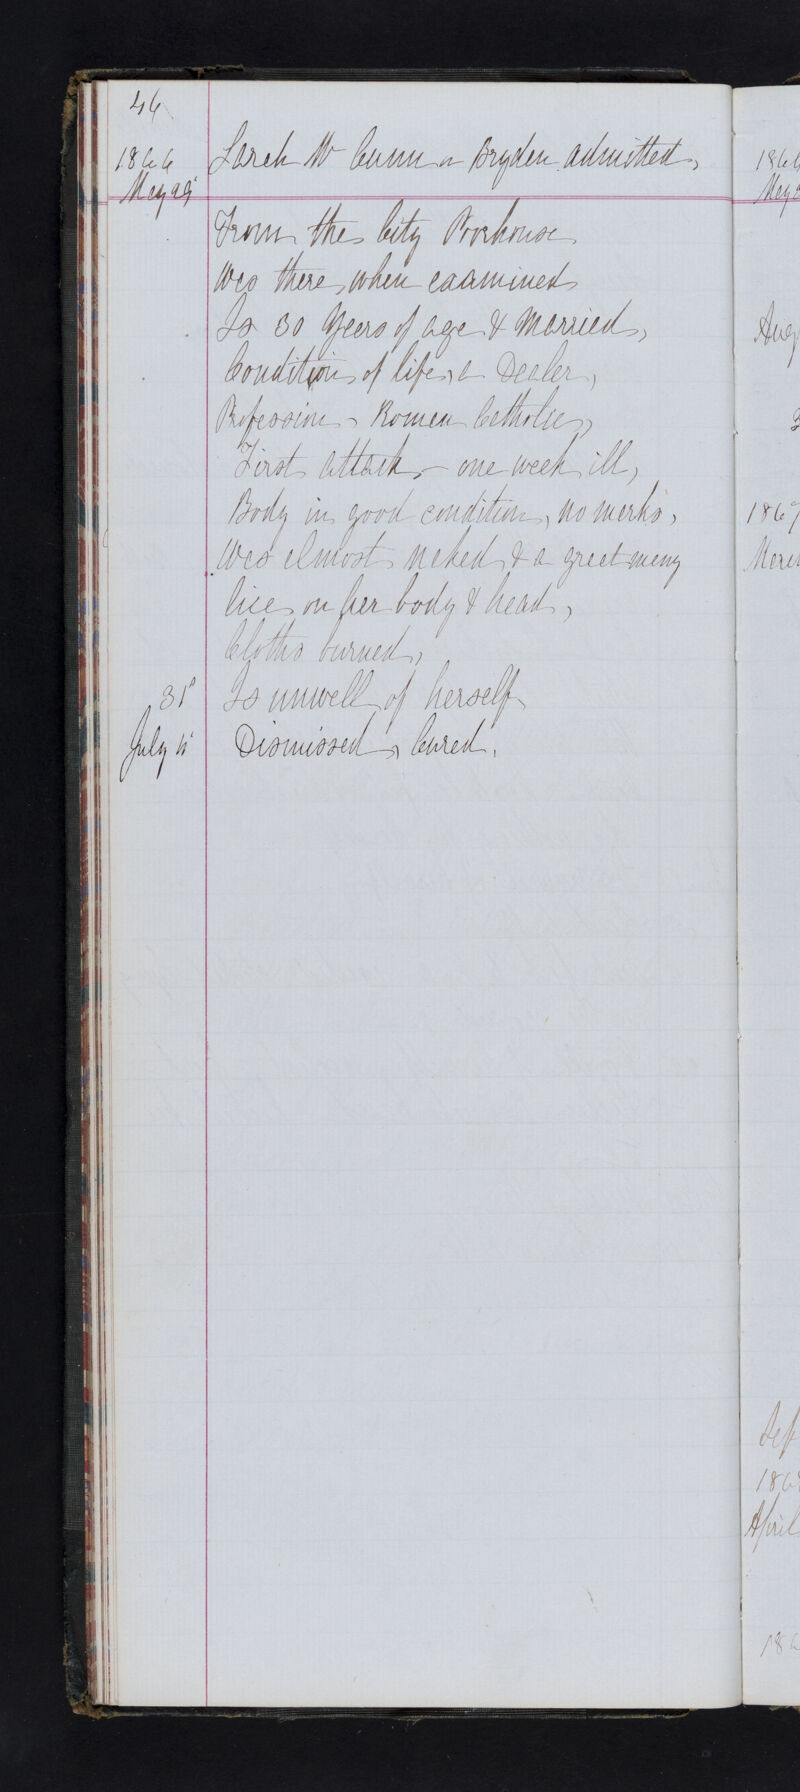 46
1866 Sarah Mc Cunn or Bryden admitted,
May 29th
From the City Poorhouse
Was there when examined
Is 30 Years of age & Married,
Condition of life, a Dealer,
Profession - Roman Catholic,
First attack, - one week ill,
Body in good condition, no marks,
Was almost naked & a great many
lice on her body & head,
Cloths burned,
31st Is unwell of herself
July Dismissed, Cured.
186
May
Aug
3
1867
March
Sep
186
April
186